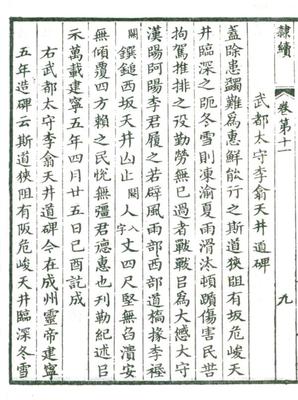 隸續
卷第十一
九
武都太守李翕天井道碑
蓋除患蠲難為惠鮮能行之斯道狹阻有坂危峻天
井臨深之阨冬雪則凍渝夏雨滑汰頓躓傷害民苦
拘駕推排之役勤勞無已過者戰戰㠯為大慽大守
漢陽阿陽李君履之若辟風雨部西部道橋掾李禔
闕鐉鎚西坂天井山止闕人字入丈四尺堅無臽潰安
無傾覆四方賴之民悅無疆君德惠也刋勒紀述㠯
示萬載建寧五年四月廿五日己酉訖成
右武都太守李翕天井道碑今在成州靈帝建寧
五年造碑云斯道狹阻有阪危峻天井臨深冬雪